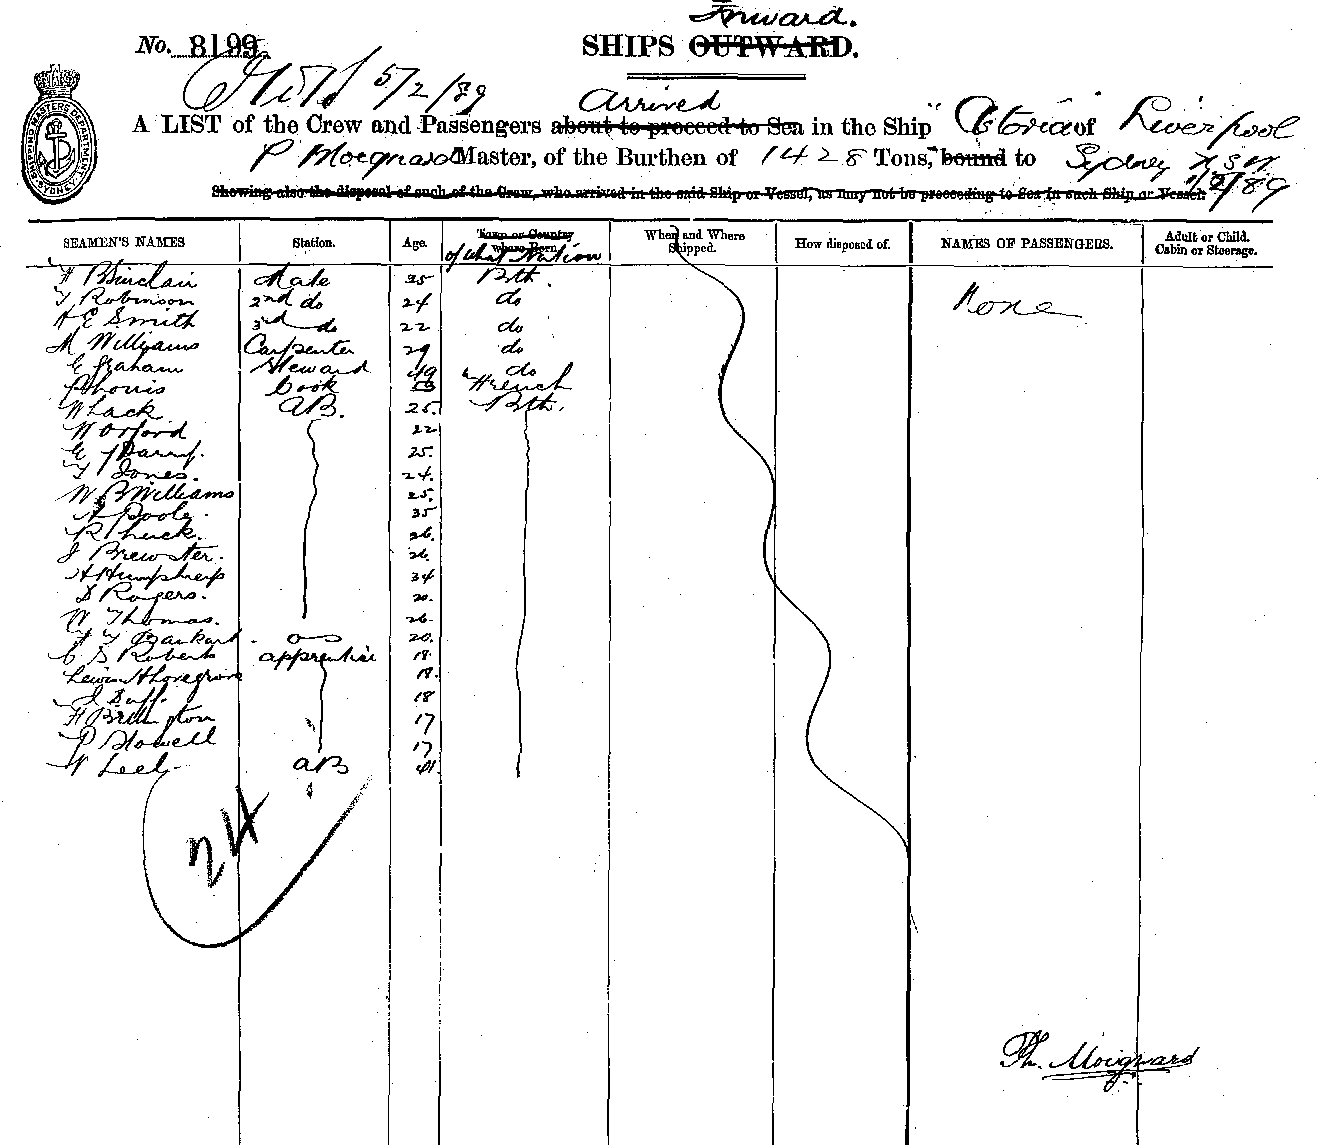 Inward.
No. 8199
SHIPS OUTWARD.
5/2/89
Arrived
A LIST of the Crew and Passengers about to proceed to Sea in the Ship " Astoria of Liverpool
P Moignard Master, of the Burthen of 1428 Tons, bound to Sydney N S W
Showing also the disposal of such of the Crew, who arrived in the said Ship or Vessel, as may not be proceeding to Sea in such Ship or Vessel
/2/89
SHIPPING MASTERS DEPARTMENT SYDNEY
SEAMEN'S NAMES Station. Age. Town or Country where Born. When and Where Shipped. How disposed of. NAMES OF PASSENGERS. Adult or Child. Cabin or Steerage.
of what Nation
Sinclair Mate 35 Bth.
T Robinson 2nd do 24 do
A E Smith 3rd do 22 do
M Williams Carpenter 29 do
E Graham Steward 49 do
Cook French
W Lack AB. 25. Bth.
W Orford 22
E Parry. 25.
T Jones. 24.
W B Williams 25.
A Poole. 35
R 26.
J Brewster. 26.
A Humphreys 34
D Rogers. 20.
W Thomas. 26.
20.
C S Roberts apprentice 18
Lewin H Lovegrove 18.
J Duff. 18
H 17
P Howell 17
W AB 41.
None
24
Ph. Moignard